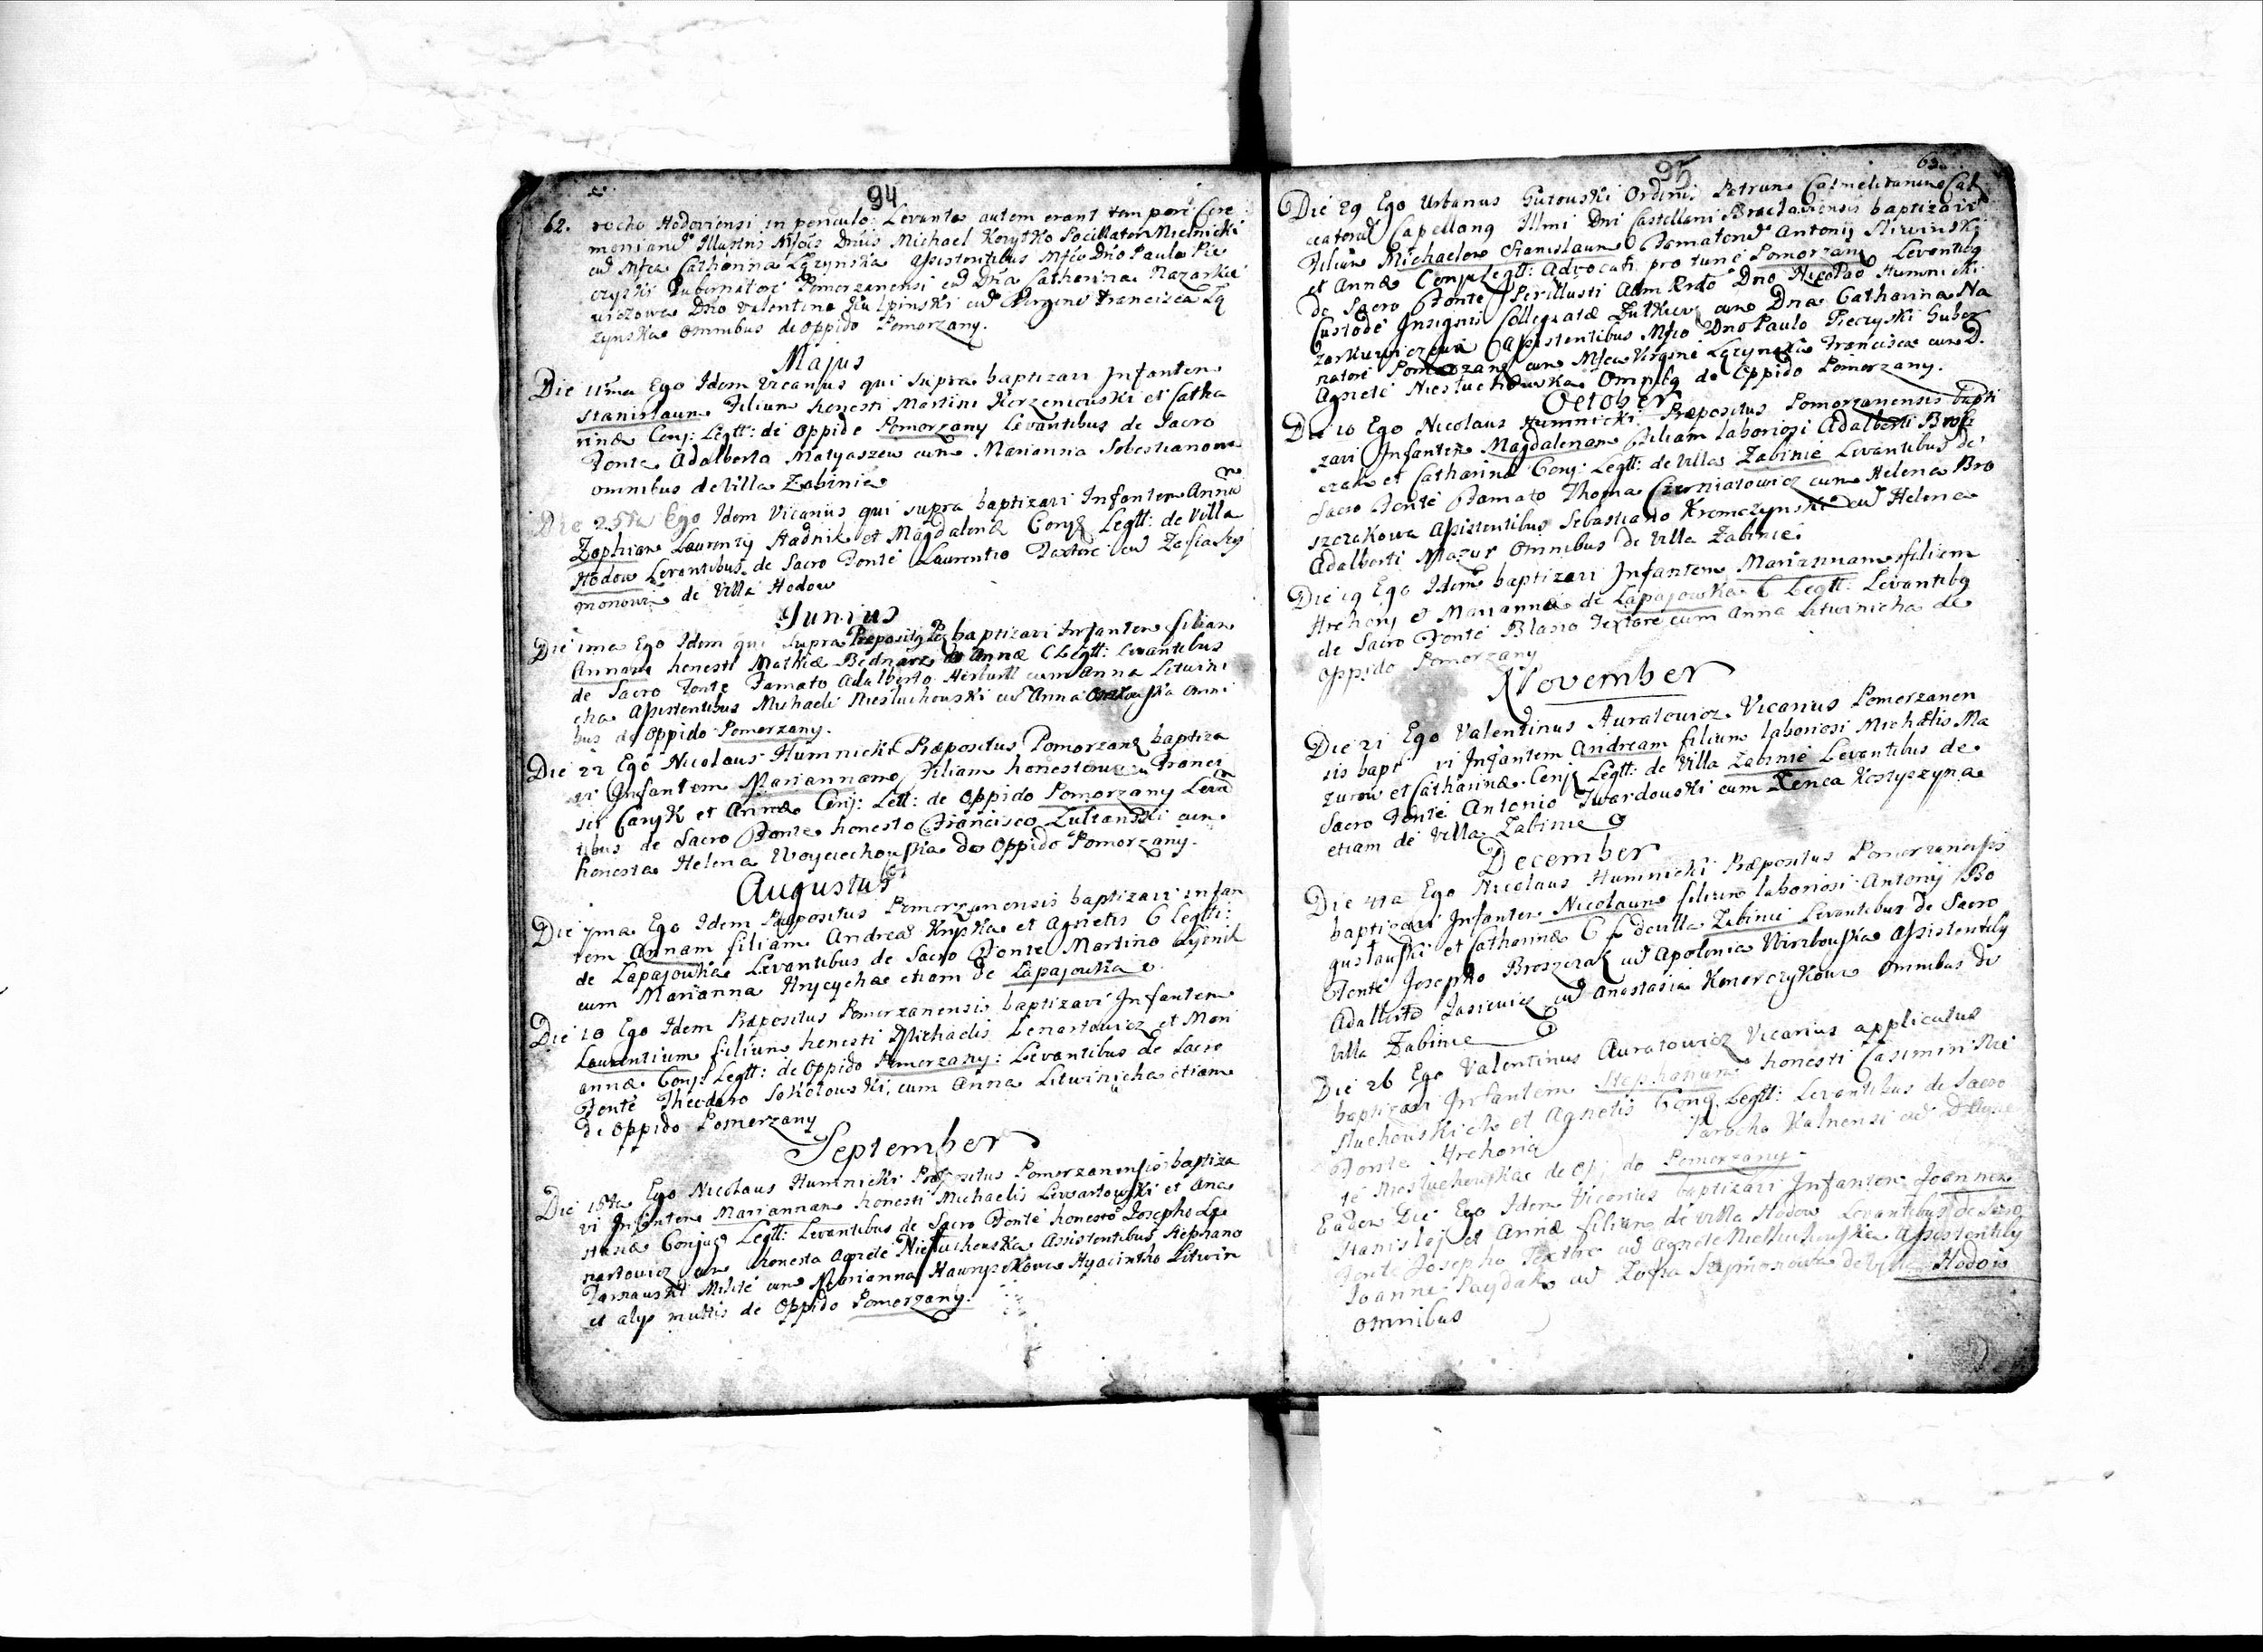 94
62. rocho Hodoviensi in periculo: Levantes autem erant tempore Cere
moniarũ Illustris Mfcus Dnus Michael Korytko Pocillator Mielnicki
cũ Mfca Catharina Łązynska assistentibus Mfco Dno Paulo Pie
czyski Gubernatore Pomorzanensi cũ Dna Catharina Nazarkie
wiczowa Dno Valentino cũ Virgine Francisca Łą
zynska omnibus de oppido Pomorzany.
Majus
Die 11ma Ego Idem Vicarius qui supra baptizavi Infantem
Stanislaum Filium honesti Martini Korzeniowski et Catha
rinæ Conj: Legtt: de Oppido Pomorzany Levantibus de Sacro
Fonte Adalberto Matyaszew cum Marianna Sobestianowa
omnibus de Villa Zabinie
Die 25ta Ego Idem Vicarius qui supra baptizavi Infantem Annã
Zophiam Laurentij Stadnik et Magdalenæ Conjg Legtt: de Villa
Hodow Levantibus de Sacro Fonte Laurentio Textore cũ
monowa de Villa Hodow
Junius
Die 1ma Ego Idem qui supra Præpositg baptizavi Infantem filiam
Annam honesti Mathiæ Bednarz et Annæ C Legtt: Levantibus
de Sacro Fonte Famato Adalberto Herburtt cum Anna Litwini
cha Assistentibus Michaele Niesluchowski cũ Anna omni
bus de Oppido Pomorzany.
Die 22 Ego Nicolaus Humnicki Præpositus Pomorzang baptiza
vi Infantem Mariannam Filiam honestorum Franci
sci Caryk et Annæ Conj: Lett: de Oppido Pomorzany Levã
tibus de Sacro Fonte honesto Francisco Zulranski cum
honesta Helena Woyciechowska de Oppido Pomorzany.
Augustus
Die 7ma Ego Idem Præpositus Pomorzanensis baptizavi Infan
tem Annam filiam Andreæ Krypka et Agnetis C legtt:
de Lapajowka Levantibus de Sacro Fonte Martino
cum Marianna Hrycycha etiam de Lapajowka
Die 10 Ego Idem Præpositus Pomorzanensis baptizavi Infantem
Laurentium filium honesti Michaelis Lenartowicz et Mari
annæ Conj: Legtt: de Oppido Pomorzany: Levantibus de Sacro
Fonte Theodoro Sokolowski, cum Anna Litwinicha etiam
de Oppido Pomorzany
September
Die 15ta Ego Nicolaus Humnicki Præpositus Pomorzanensis baptiza
vi Infantem Mariannam honesti Michaelis et Ana
stasiæ Conjug Legtt: Levantibus de Sacro Fonte honesto Josepho Le
nartowicz cum honesta Agnete Niesluchowska Assistentibus Stephano
Tarnawski Milite cum Marianna Hawryszkowa Hyacintho Litwin
et alys multis de Oppido Pomorzany.
95
63.
Die 29 Ego Urbanus Gutowski Ordinis Patrum Carmelitarum Cal
ceatorũ Capellang Illmi Dni Castellani Braclaviensis baptizavi
Filium Michaelem Stanislaum Famatorũ Antonij Sliwinski
et Annæ Conjug Legtt: Advocati pro tunc Pomorzany Levantibg
de Sacro Fonte Perillustri Adm Rndo Dno Nicolao Humnicki
Custode Insignis Collegiatæ cum Dna Catharina Na
zarkiewiczowa Assistentibus Mfco Dno Paulo Pieczyski Guber
natore Pomorzang cum Mfca Virgine Łązynska Francisca cum D.
Agnete Niesluchowska Omnibg de Oppido Pomorzany.
October
Die 10 Ego Nicolaus Humnicki Præpositus Pomorzanensis bapti
zavi Infantem Magdalenam Filiam laboriosi Adalberti Brosz
czak et Catharinæ Conj: Legtt: de Villa Zabinie Levantibus de
Sacro Fonte Famato Thoma Czerniatowicz cum Helena Bro
szczakowa Assistentibus Sebastiano Kromczynski cũ Helena
Adalberti Mazur Omnibus de Villa Zabinie.
Die 19 Ego Idem baptizavi Infantem Mariannam filiam
Hrehory et Mariannæ de Lapajowka C Legtt: Levantibg
de Sacro Fonte Blasio Textore cum Anna Litwinicha de
Oppido Pomorzany
November
Die 21 Ego Valentinus Auratowicz Vicarius Pomorzanen
sis bapt vi Infantem Andream filium laboriosi Michælis Ma
zurow et Catharinæ Conjg Legtt: de Villa Zabinie Levantibus de
Sacro Fonte Antonio Twardowski cum Xenca Kostyszyna
etiam de Villa Zabinie
December
Die 4ta Ego Nicolaus Humnicki Præpositus Pomorzanensis
baptizavi Infantem Nicolaum filium laboriosi Antonij Bo
guslawski et Catharinæ C L de villa Zabinie Levantibus de Sacro
Fonte Josepho Broszczak cũ Apolonia Wirzbowska Assistentibg
Adalberto Jasiewicz cũ Anastasia Konorczykowa Omnibus de
Villa Zabinie
Die 26 Ego Valentinus Auratowicz Vicarius applicatus
baptizavi Infantem Stephanum honesti Casimiri Nie
sluchowski et Agnetis Conjg Legtt: Levantibus de Sacro
Fonte Hrehorio Parocho Kalnensi cũ D Agne
te Niesluchowska de Oppido Pomorzany.
Eadem Die Ego Idem Vicarius baptizavi Infantem Joannem
Stanislaj et Annæ filium de villa Hodow Levantibus de Sacro
Fonte Josepho Textore cũ Agnete Niesluchowska Assistentibg
Joanne Paydak cũ Zofia Szymonowa de Villa Hodow
omnibus